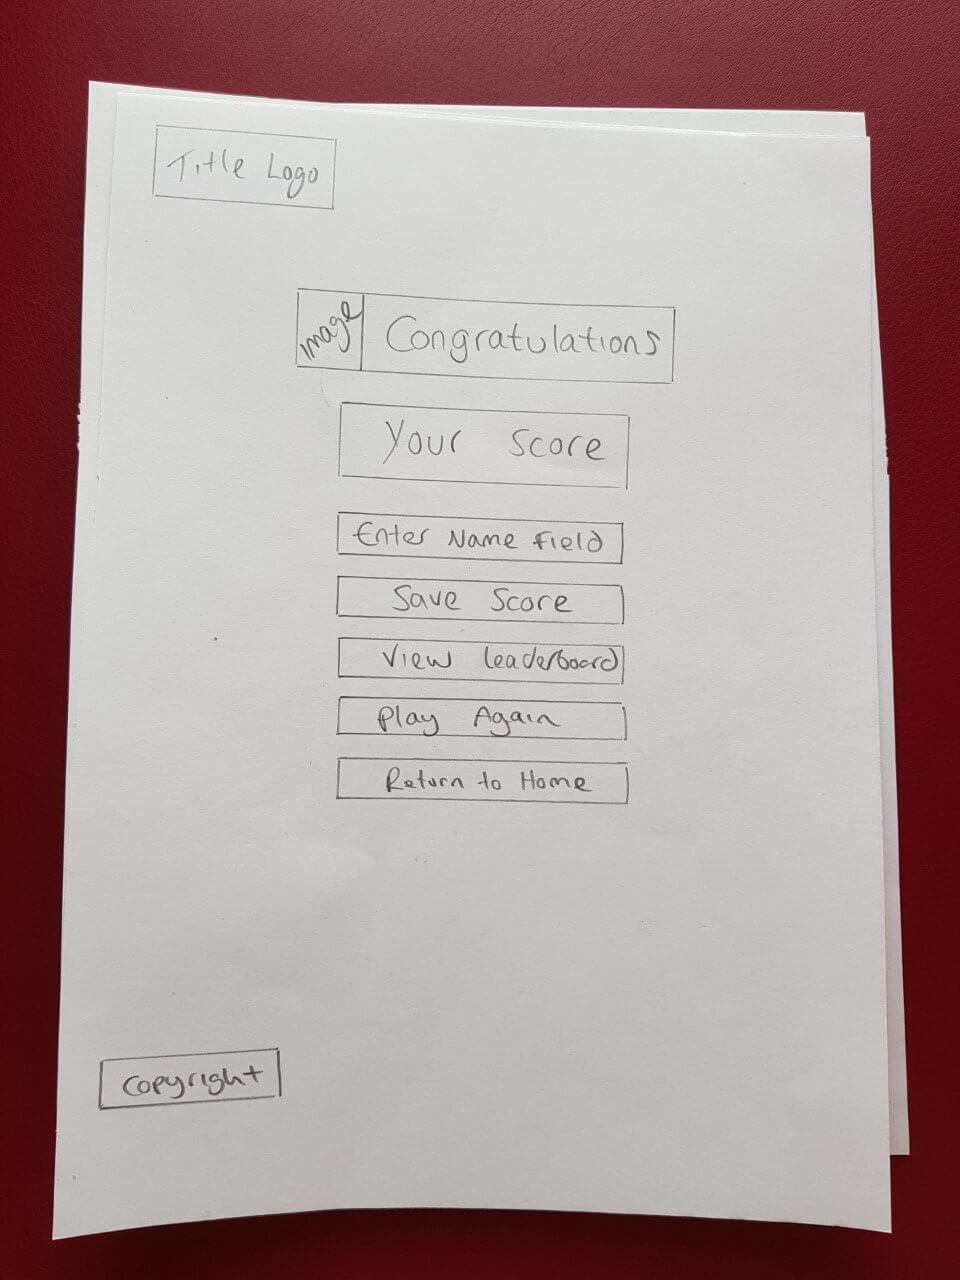 Title Logo
Image Congratulations
Your Score
Enter Name Field
Save Score
View leaderboard
Play Again
Return to Home
Copyright